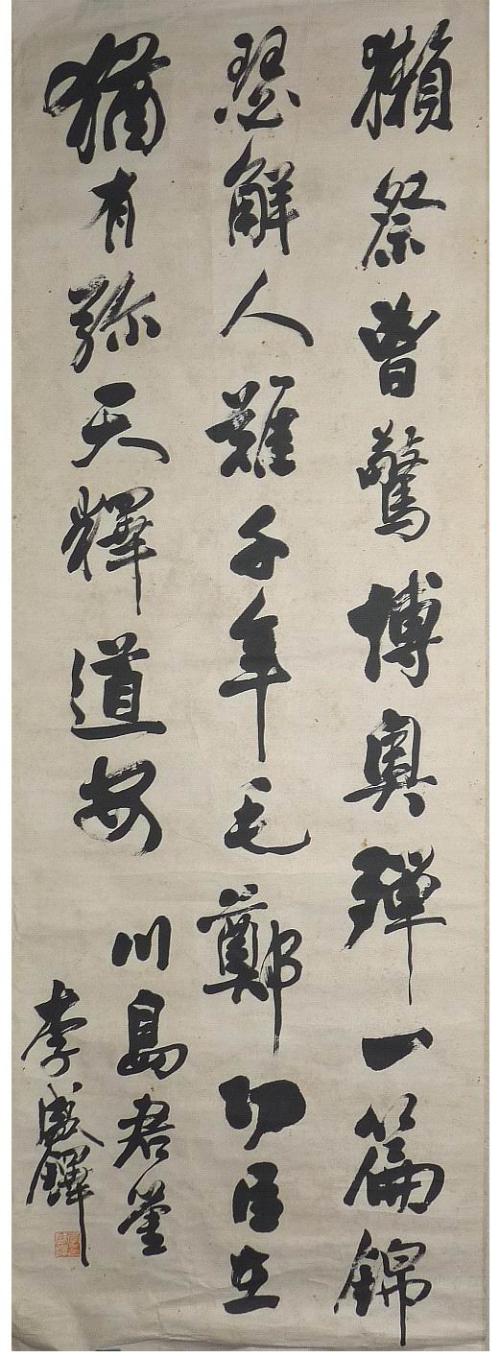 獺祭曾驚博奧殫一篇錦
瑟解人難千年毛鄭功臣在
猶有彌天釋道安
川島君鑒
李盛鐸